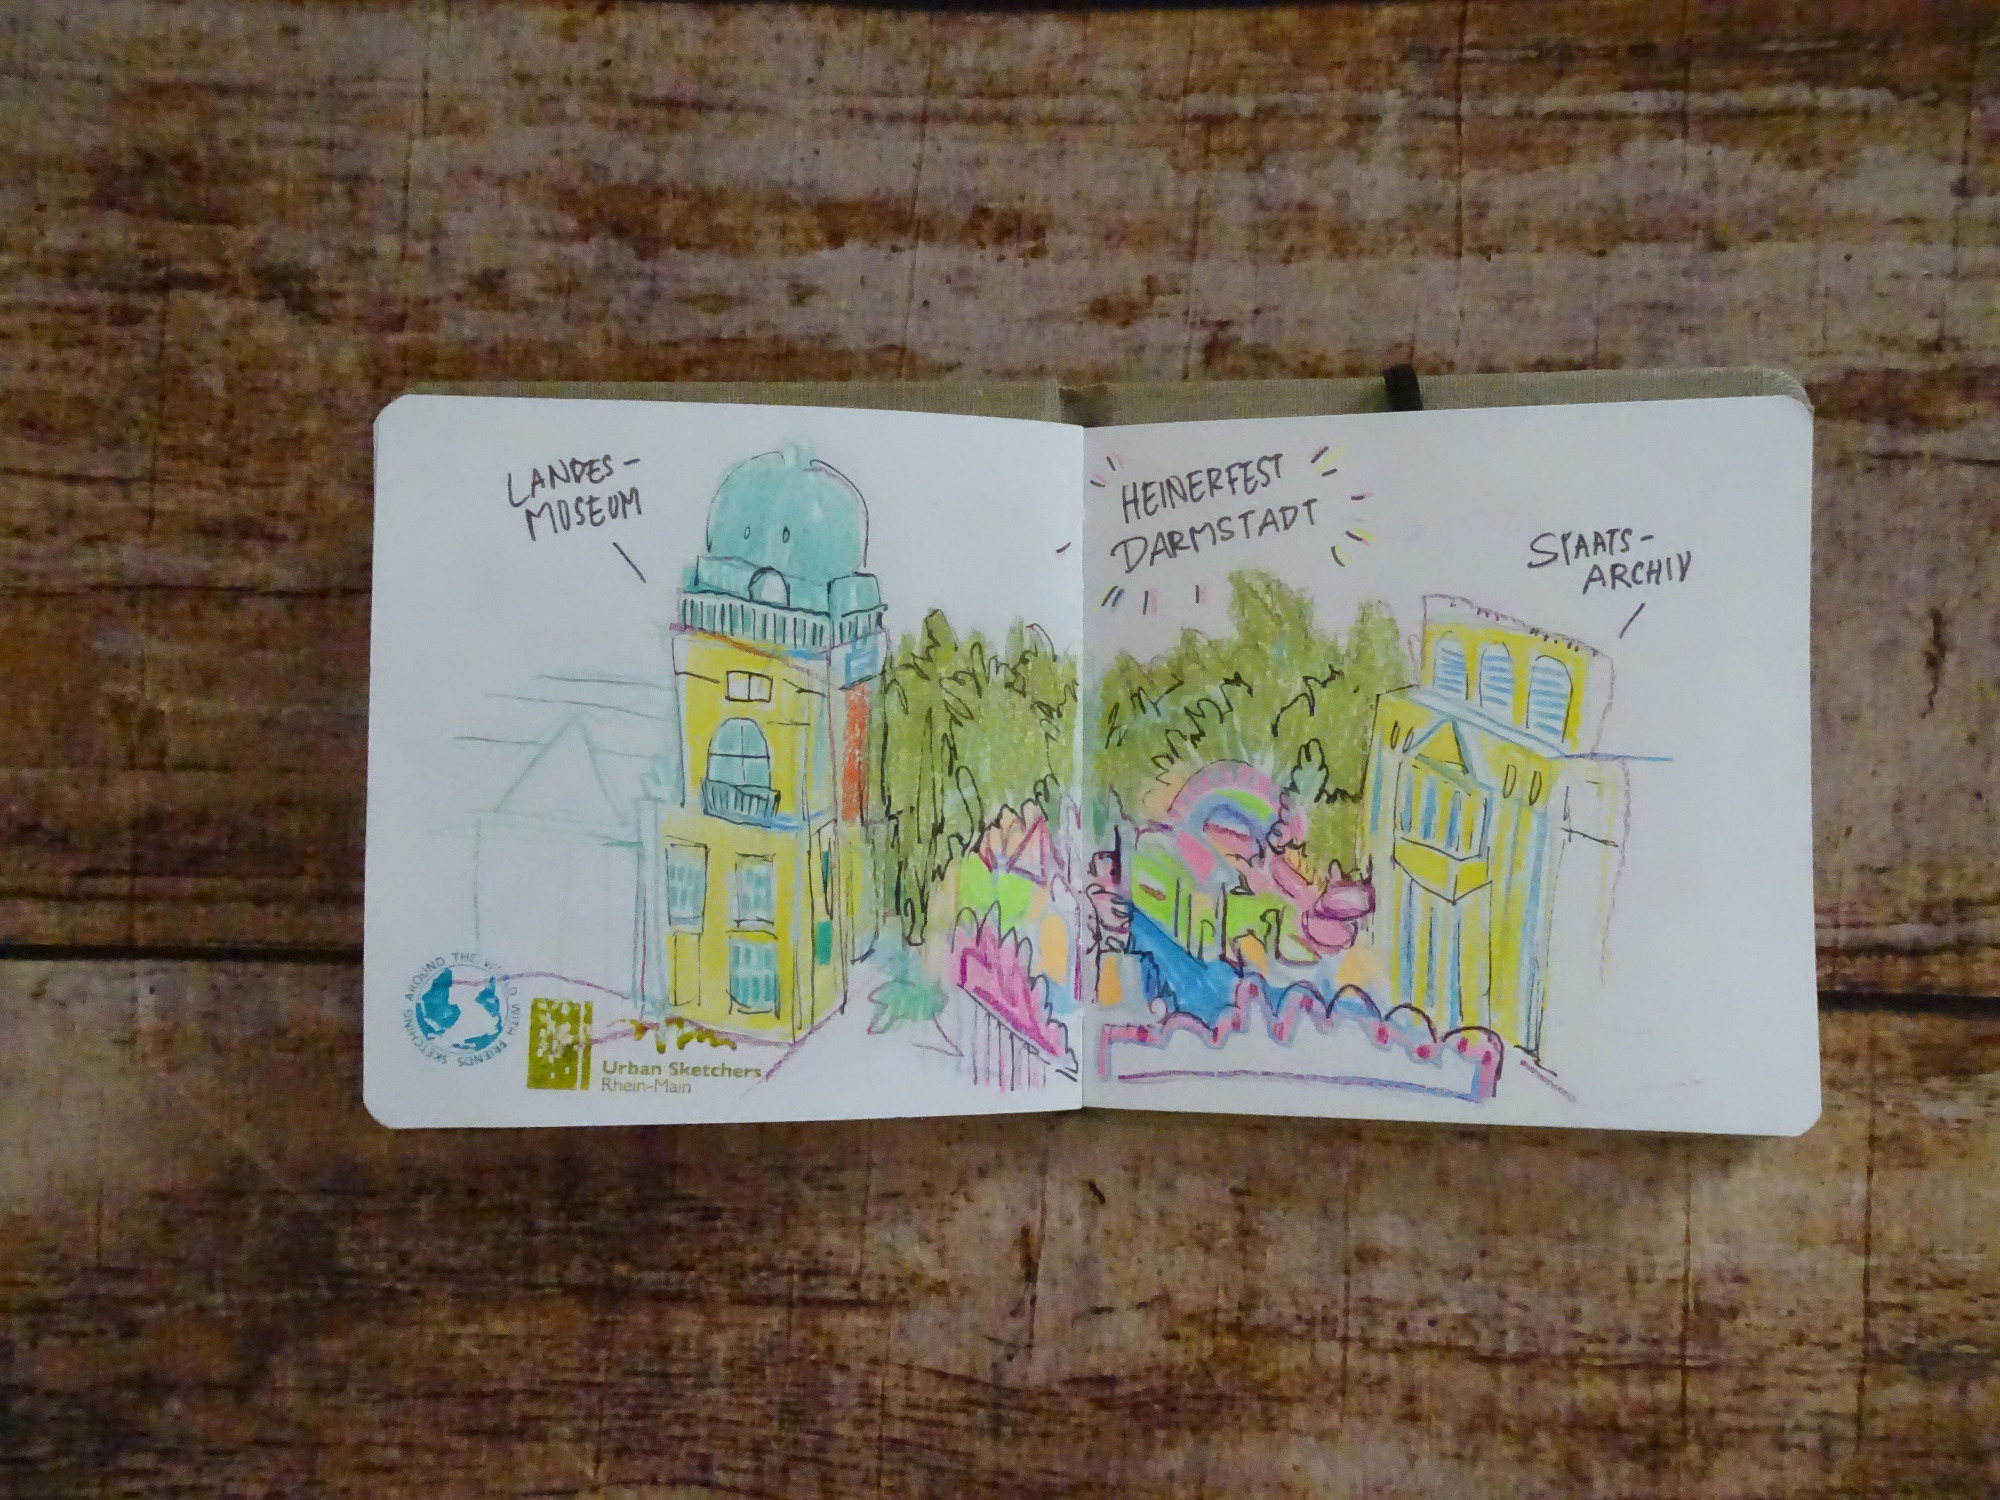 LANDES-
MUSEUM
HEINERFEST
DARMSTADT
STAATS-
ARCHIV
SKETCHING AROUND THE WORLD WITH FRIENDS
Urban Sketchers
Rhein-Main